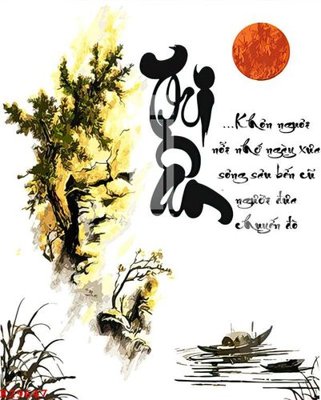 ...Khôn nguôi
nỗi nhớ ngày xưa
sông sâu bến cũ
người đưa
chuyến đò